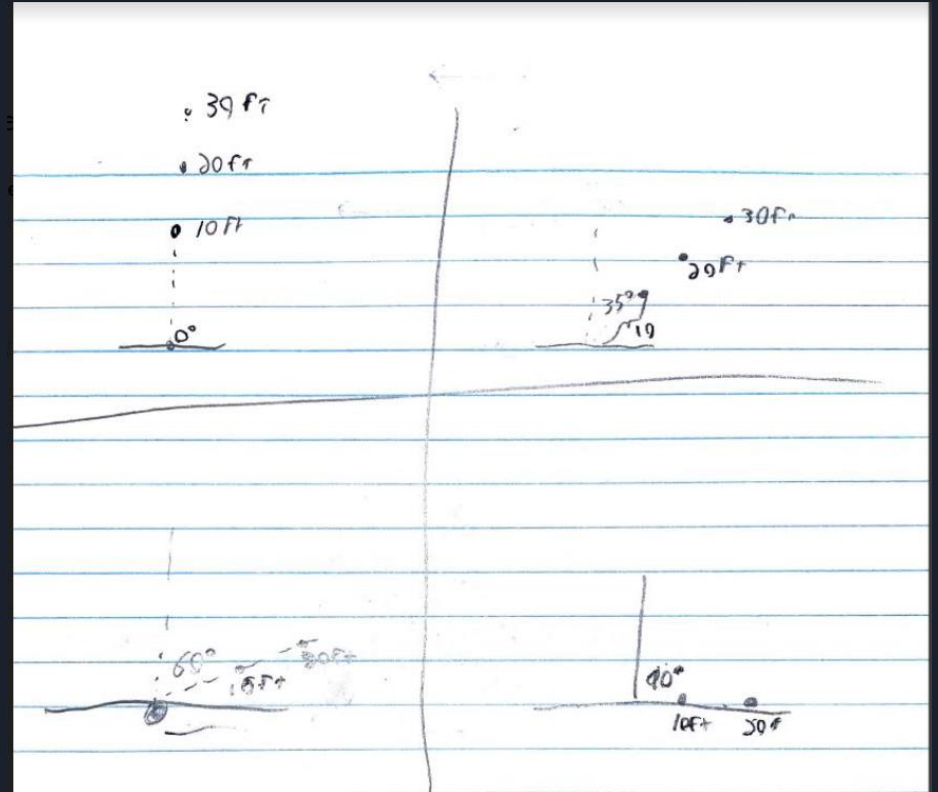 30 ft
20 ft
10 ft
0°
30 ft
20 ft
35°
10
60°
15 ft
30 ft
90°
10 ft
20 ft